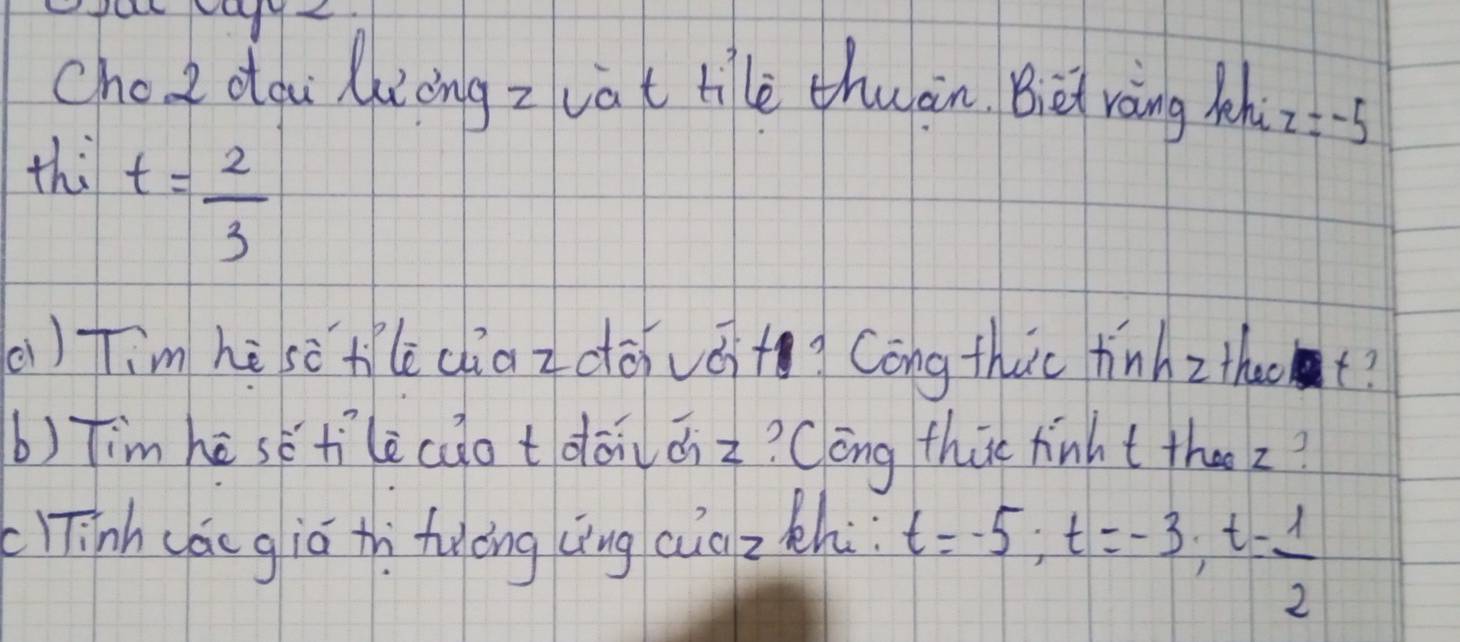 Cho 2 đại lượng z và t tỉ lệ thuận. Biết rằng khi z = -5
thì t = 2/3
a) Tìm hệ số tỉ lệ của z đối với t? Công thức tính z theo t?
b) Tìm hệ số tỉ lệ của t đối với z? Công thức tính t theo z?
c) Tính các giá trị tương ứng của z khi: t = -5; t = -3; t = 1/2